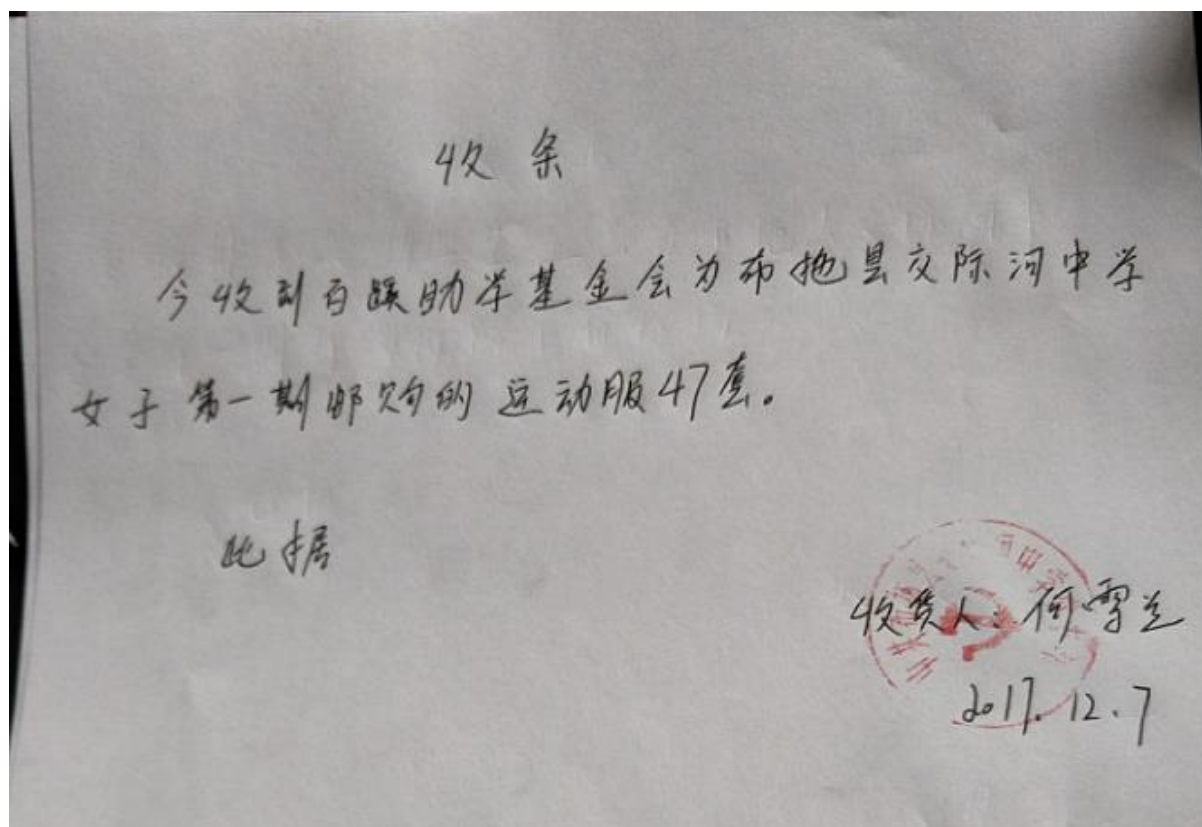 收条
今收到百蹊助学基金会为布拖县交际河中学
女子第一期邮购的运动服47套。
此据
收货人:何雪兰
2017.12.7